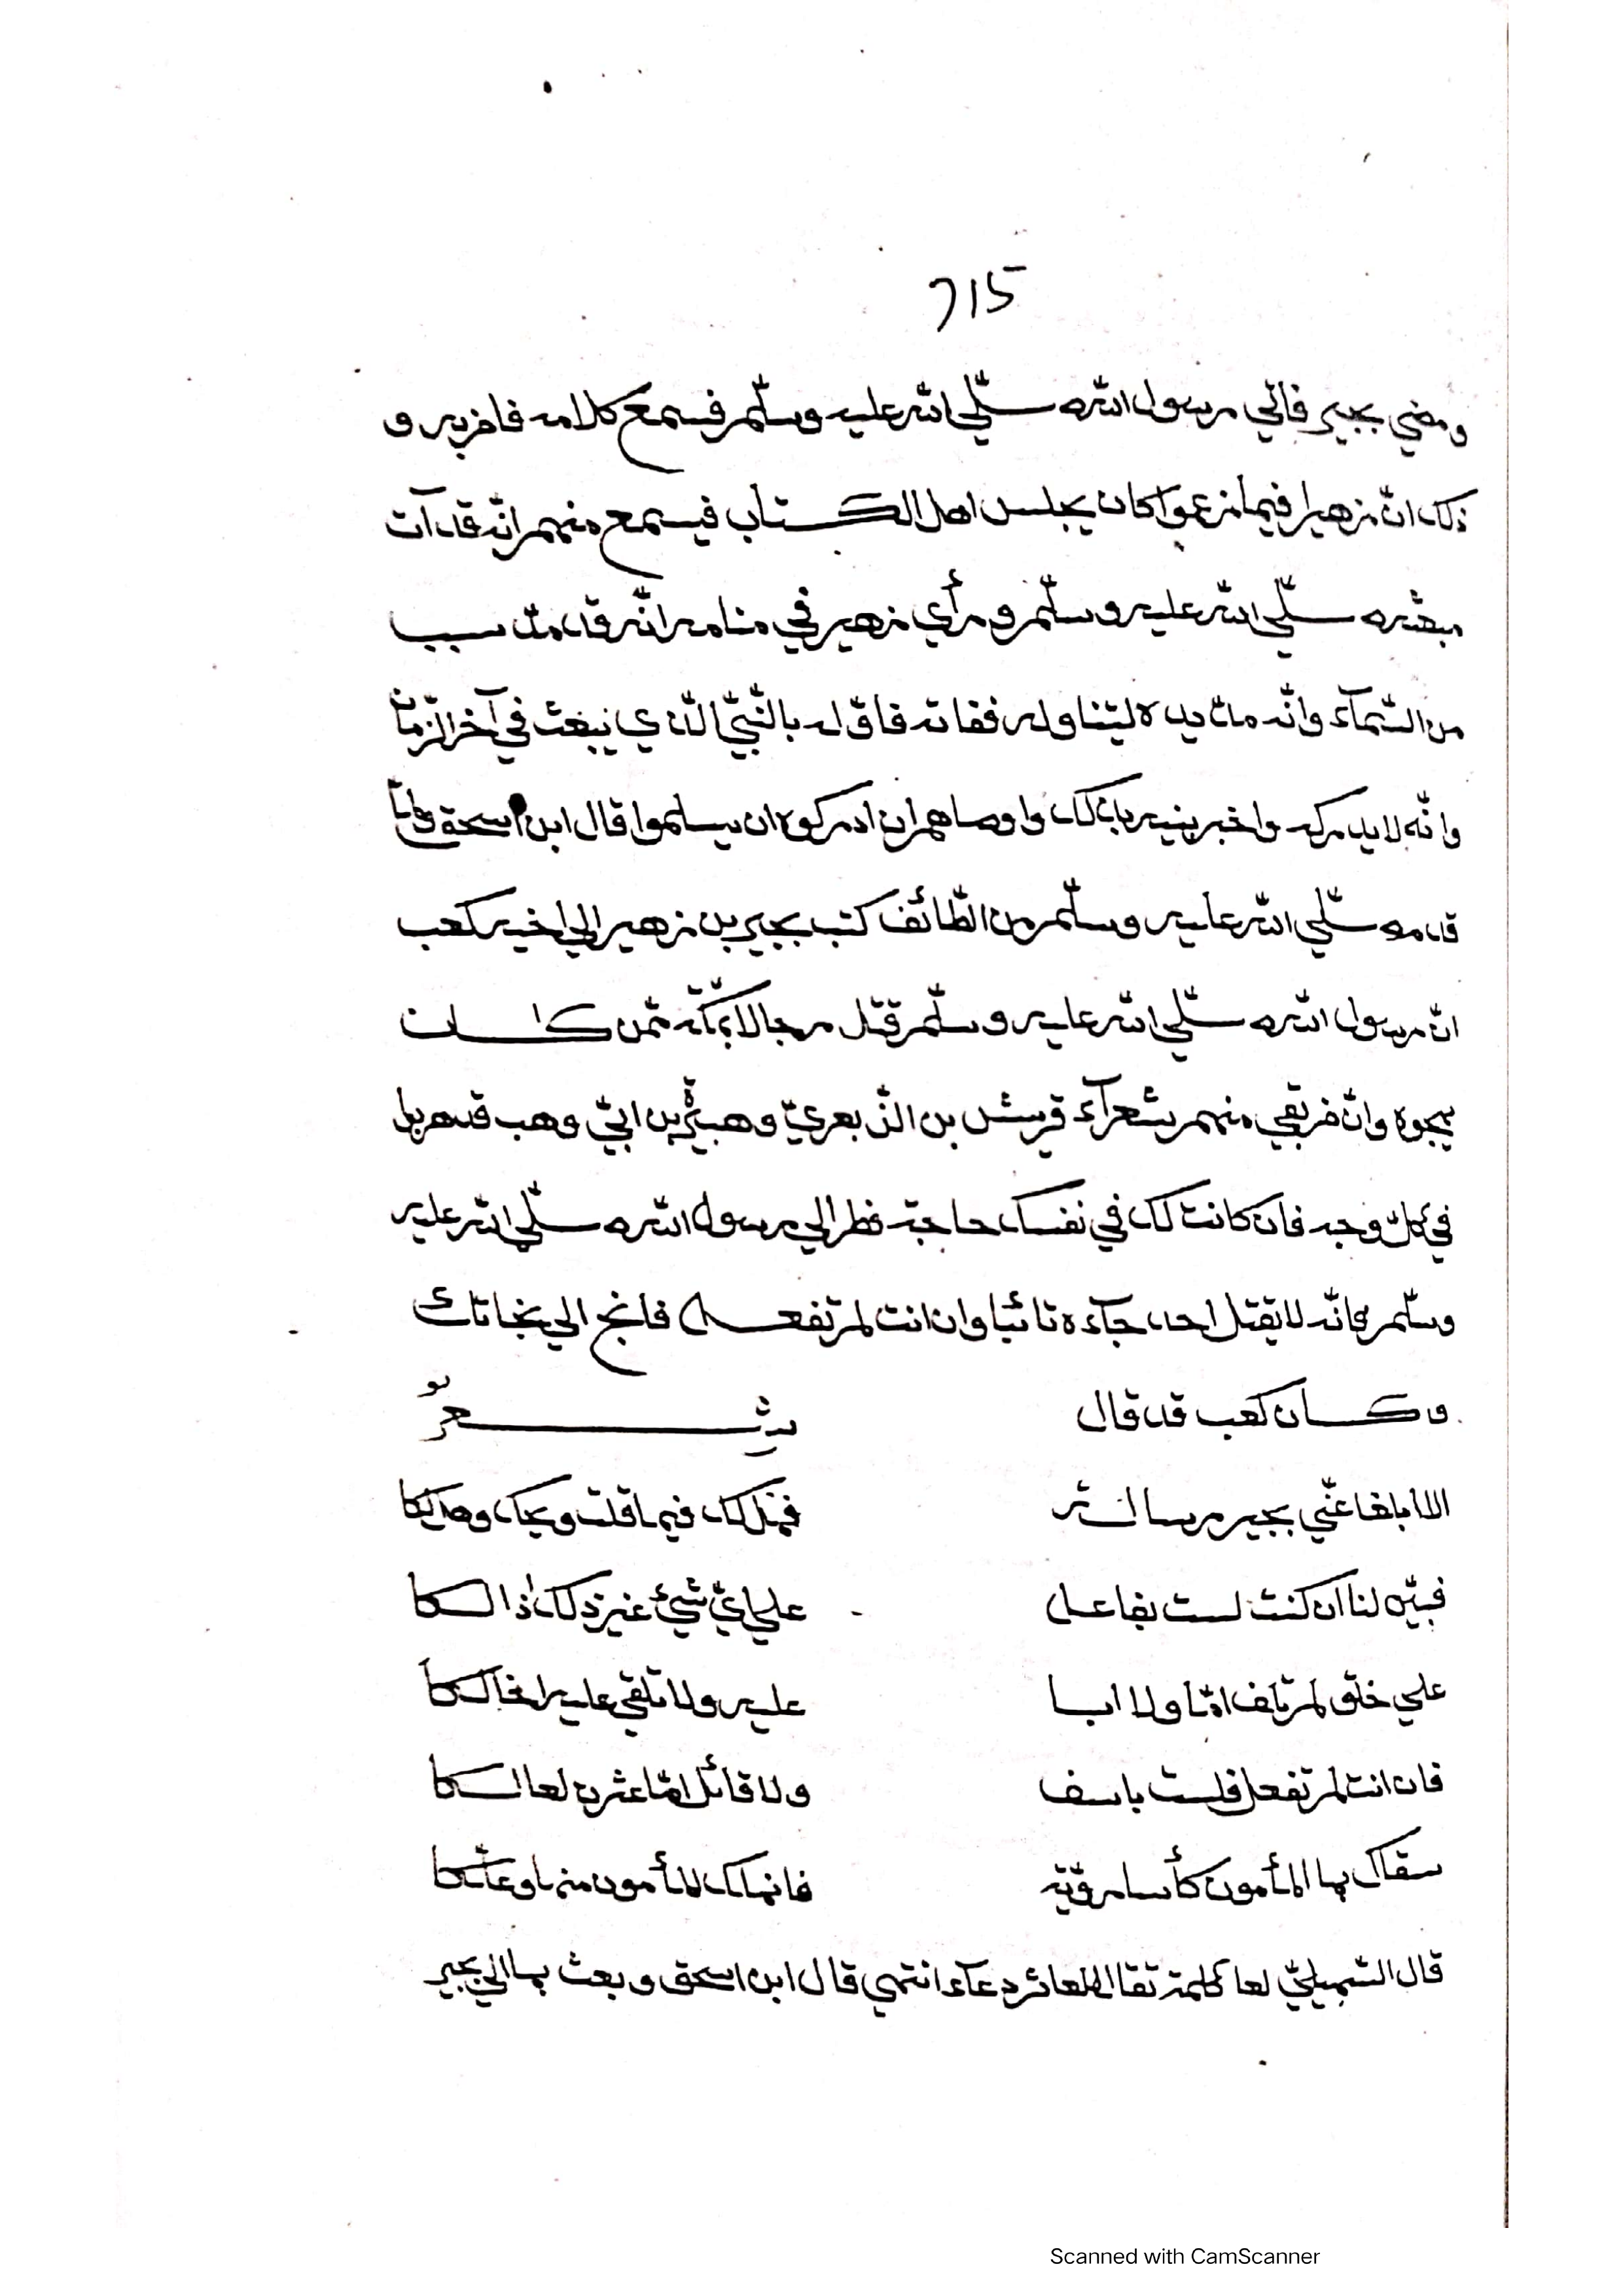 715
ومضي بجير فاتي رسول اللّه صلّي اللّه عليه وسلّم فسمع كلامه فامن به و
ذلك انّ زهيرا فيما زعموا كان يجلس اهل الكتاب فيسمع منهم انّه قد آن
مبعثه صلّي اللّه عليه وسلّم و رأي زهير في منامه انّه قد مدّ سبب
من السّمآء وانّه مدّ يده ليتناوله ففاته فاوّله بالنّبيّ الّذي يبعث في آخر الزّمان
وانّه لا يدركه واخبر بنيه بذلك واوصاهم ان ادركوه ان يسلموا قال ابن اسحق ولمّا
قدم صلّي اللّه عليه وسلّم من الطّائف كتب بجير بن زهير الي اخيه كعب
انّ رسول اللّه صلّي اللّه عليه وسلّم قتل رجالا بمكّة ممّن كان
يهجوه وانّ من بقي منهم شعرآء قريش بن الزّبعريّ وهبيرة بن ابيّ وهب قد هربوا
في كلّ وجه فان كانت لك في نفسك حاجة فطر الي رسول اللّه صلّي اللّه عليه
وسلّم فانّه لا يقتل احد جآءه تائبا وان انت لم تفعل فانج الي نجاتك
وكان كعب قد قال شعرٌ
الا ابلغا عنّي بجير رسالة فهل لك فيما قلت ويحك هل لكا
فبيّن لنا ان كنت لست بفاعل علي ايّ شيئ غير ذلك ذالكا
علي خلق لم تلف امّا ولا ابا عليه ولا تلقي عليه اخا لكا
فان انت لم تفعل فلست باسف ولا قائل امّا عثرت لعا لكا
سقاك بها المأمون كأسا رويّة فانهلك المأمون منها وعلّكا
قال السّهيليّ لعا كلمة تقال للعاثر دعآء انتهي قال ابن اسحق وبعث بها الي بجير
Scanned with CamScanner